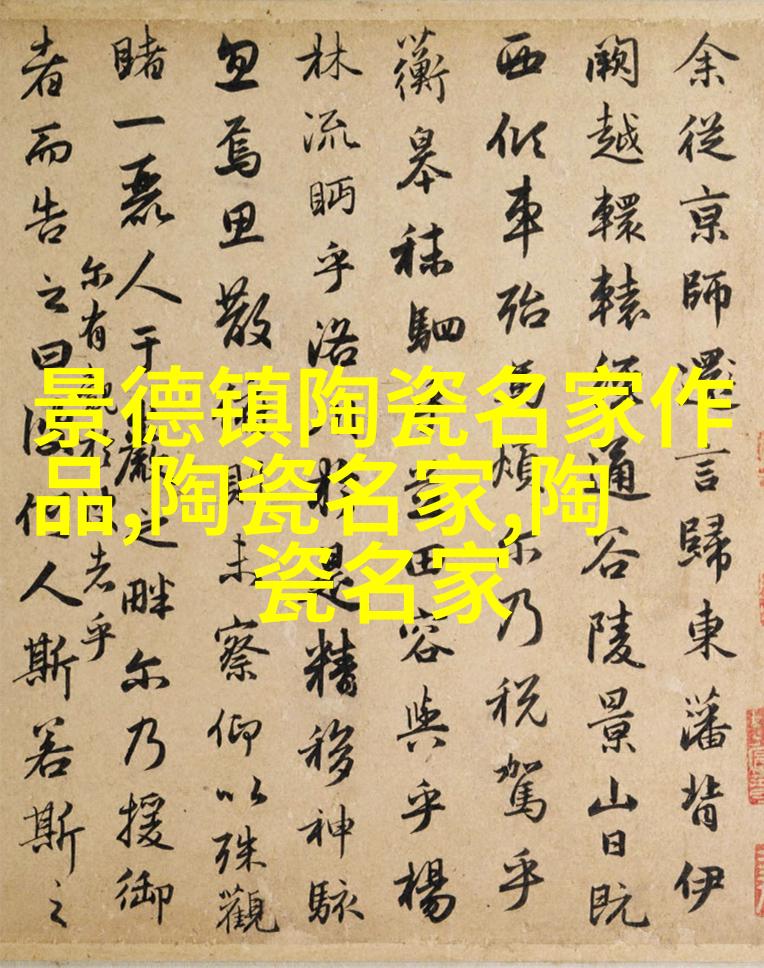 余從京師還言歸東藩背伊
闕越轘轅經通谷陵景山日既
西傾車殆馬煩尓乃税駕乎
蘅皋秣駟田容與乎楊
林流眄乎洛於是精移神駭
忽焉思散則未察仰以殊觀
睹一麗人于巖之畔尓乃援御
者而告之曰彼何人斯若斯之
尓有者乎
景德镇陶瓷名家作
品,陶瓷名家,陶
瓷名家